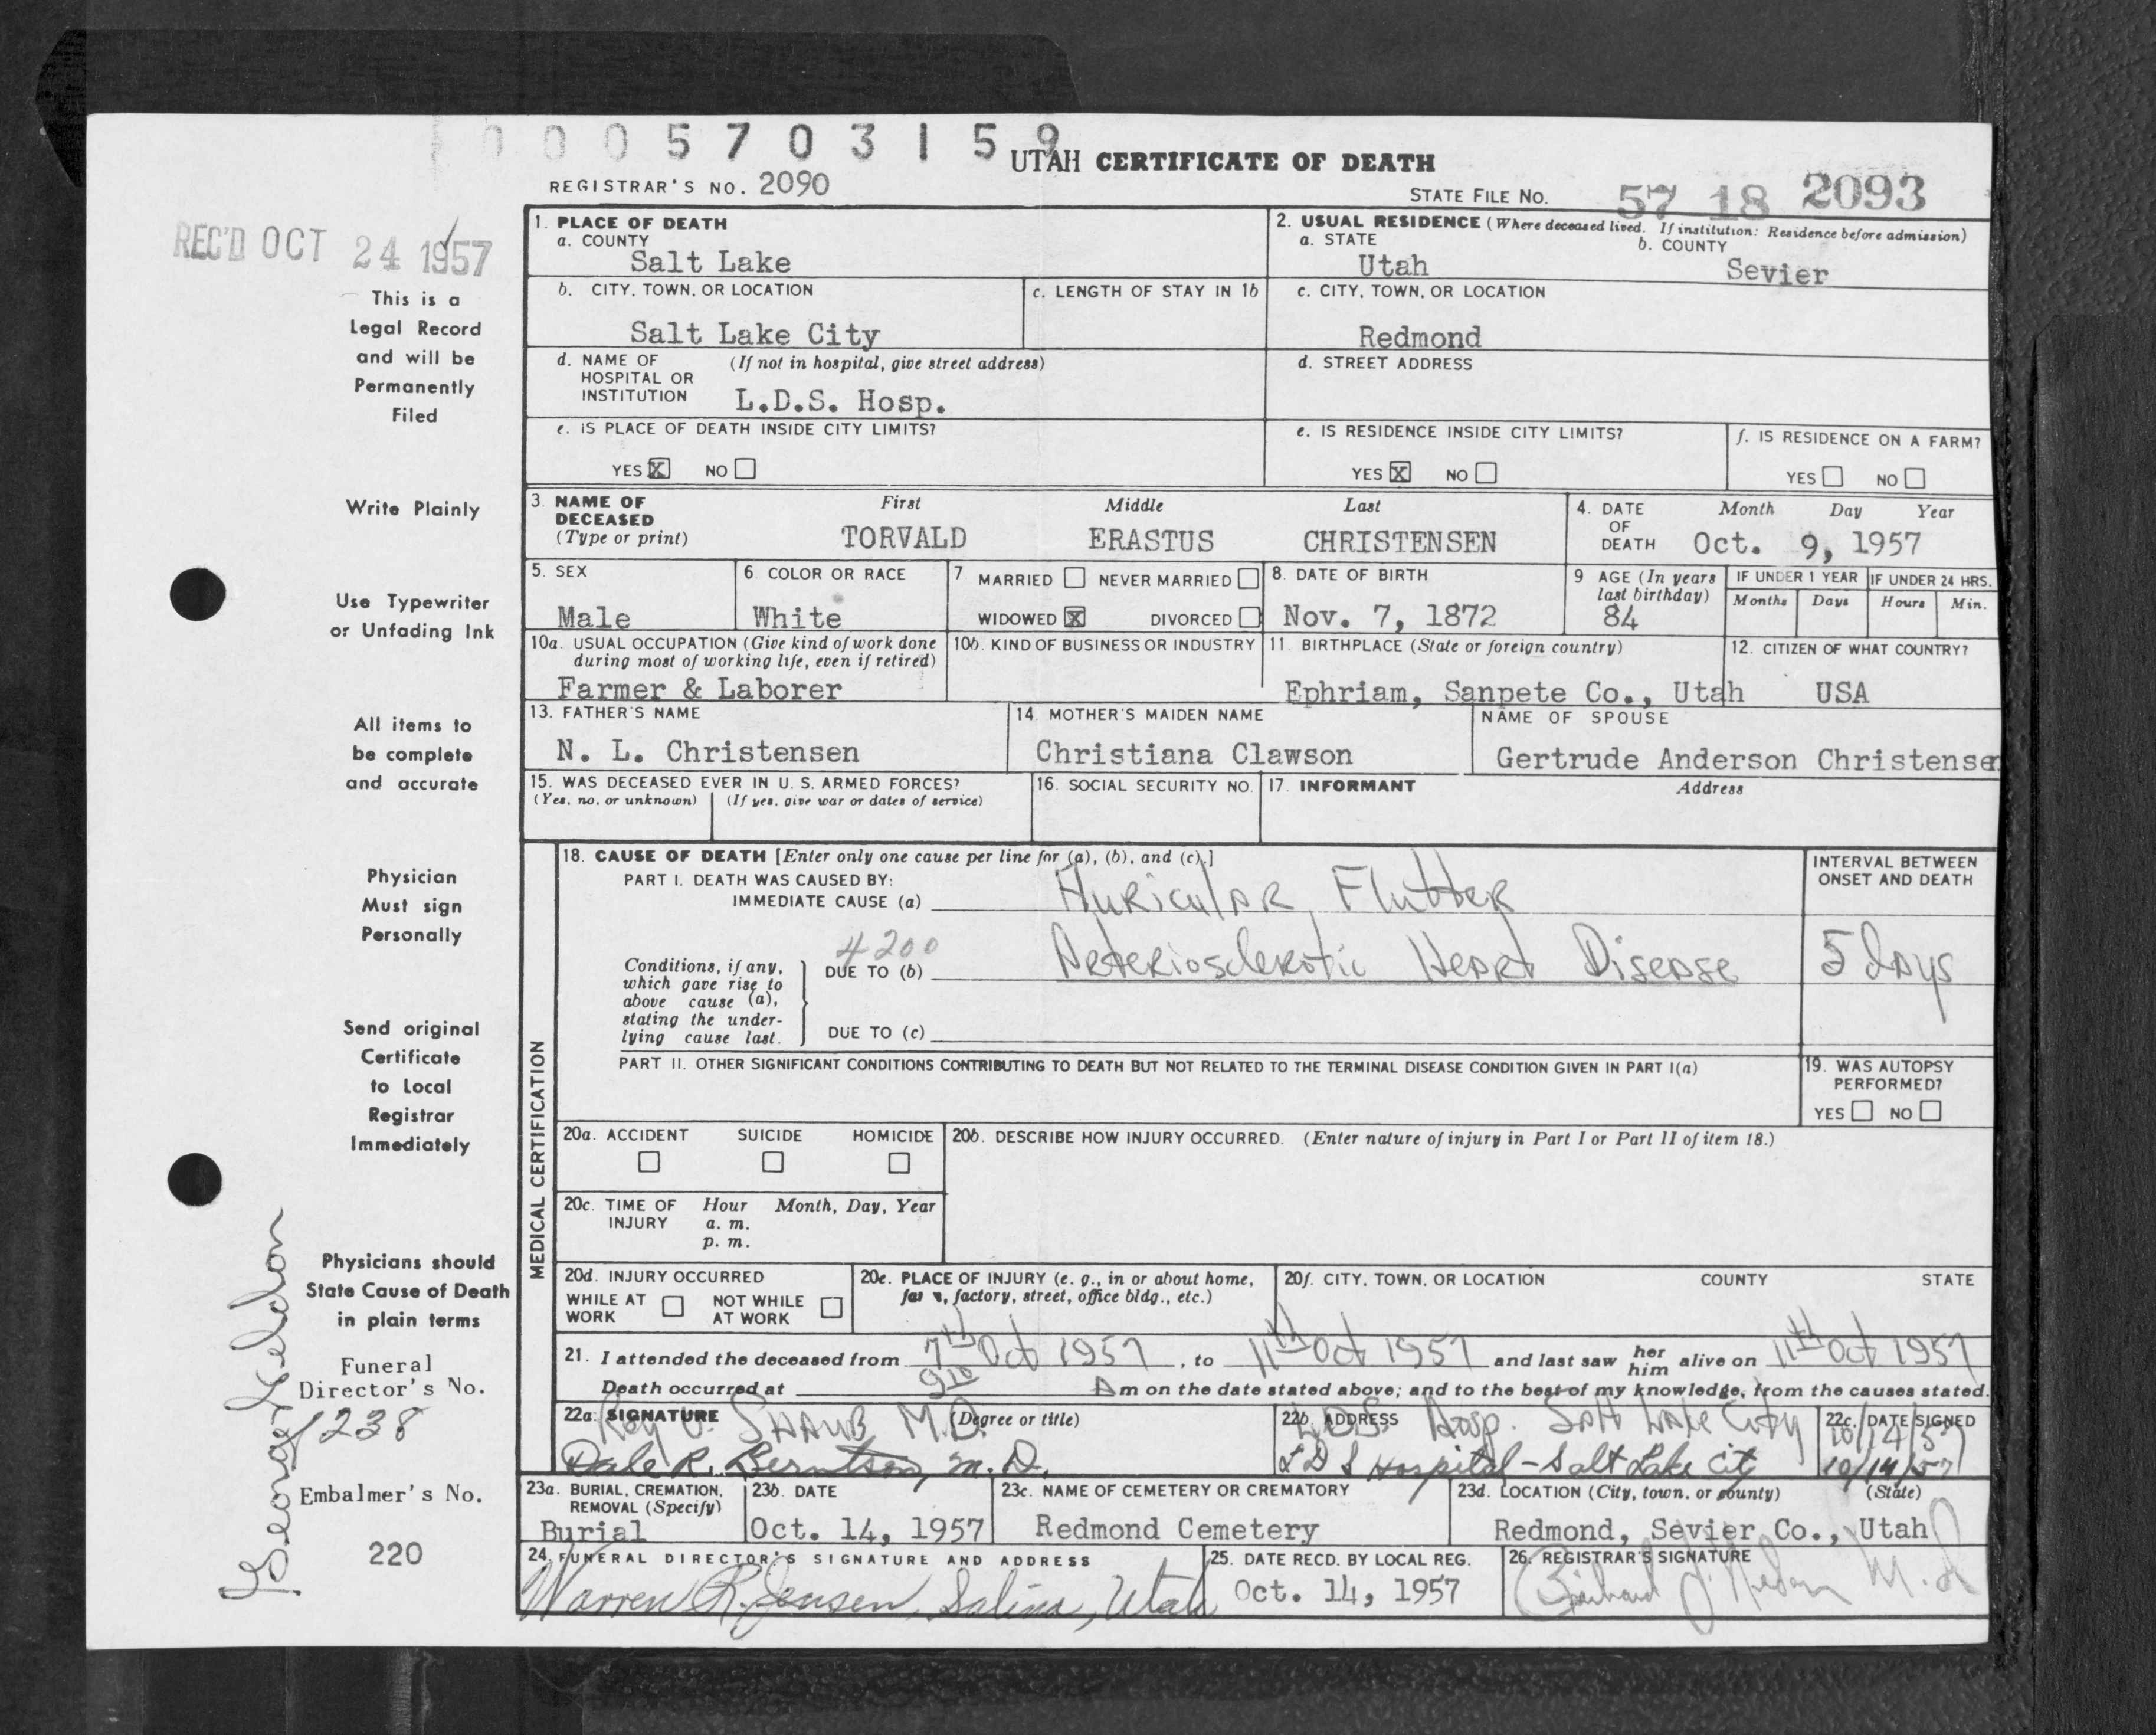 0 0 0 5 7 0 3 1 5 9
UTAH CERTIFICATE OF DEATH
REGISTRAR'S NO. 2090
STATE FILE NO. 57 18 2093
REC'D OCT 24 1957
This is a
Legal Record
and will be
Permanently
Filed
Write Plainly
Use Typewriter
or Unfading Ink
All items to
be complete
and accurate
Physician
Must sign
Personally
Send original
Certificate
to Local
Registrar
Immediately
Physicians should
State Cause of Death
in plain terms
Funeral
Director's No.
1238
Embalmer's No.
220
George
1. PLACE OF DEATH
a. COUNTY
Salt Lake
2. USUAL RESIDENCE (Where deceased lived. If institution: Residence before admission)
a. STATE
b. COUNTY
Utah
Sevier
b. CITY, TOWN, OR LOCATION
c. LENGTH OF STAY IN 1b
c. CITY, TOWN, OR LOCATION
Salt Lake City
Redmond
d. NAME OF HOSPITAL OR INSTITUTION
(If not in hospital, give street address)
L.D.S. Hosp.
d. STREET ADDRESS
e. IS PLACE OF DEATH INSIDE CITY LIMITS?
YES X NO
e. IS RESIDENCE INSIDE CITY LIMITS?
YES X NO
f. IS RESIDENCE ON A FARM?
YES NO
3. NAME OF DECEASED (Type or print)
First Middle Last
TORVALD ERASTUS CHRISTENSEN
4. DATE OF DEATH
Month Day Year
Oct. 9, 1957
5. SEX
Male
6. COLOR OR RACE
White
7 MARRIED NEVER MARRIED
WIDOWED X DIVORCED
8. DATE OF BIRTH
Nov. 7, 1872
9 AGE (In years last birthday)
84
IF UNDER 1 YEAR
Months Days
IF UNDER 24 HRS.
Hours Min.
10a. USUAL OCCUPATION (Give kind of work done
during most of working life, even if retired)
Farmer & Laborer
10b. KIND OF BUSINESS OR INDUSTRY
11. BIRTHPLACE (State or foreign country)
Ephriam, Sanpete Co., Utah
12. CITIZEN OF WHAT COUNTRY?
USA
13. FATHER'S NAME
N. L. Christensen
14. MOTHER'S MAIDEN NAME
Christiana Clawson
NAME OF SPOUSE
Gertrude Anderson Christensen
15. WAS DECEASED EVER IN U. S. ARMED FORCES?
(Yes, no, or unknown) (If yes, give war or dates of service)
16. SOCIAL SECURITY NO.
17. INFORMANT
Address
MEDICAL CERTIFICATION
18. CAUSE OF DEATH [Enter only one cause per line for (a), (b), and (c).]
PART I. DEATH WAS CAUSED BY:
IMMEDIATE CAUSE (a) Auricular Flutter
INTERVAL BETWEEN
ONSET AND DEATH
4200
Conditions, if any,
which gave rise to
above cause (a),
stating the under-
lying cause last.
DUE TO (b) Arteriosclerotic Heart Disease
5 days
DUE TO (c)
PART II. OTHER SIGNIFICANT CONDITIONS CONTRIBUTING TO DEATH BUT NOT RELATED TO THE TERMINAL DISEASE CONDITION GIVEN IN PART I(a)
19. WAS AUTOPSY
PERFORMED?
YES NO
20a. ACCIDENT SUICIDE HOMICIDE
20b. DESCRIBE HOW INJURY OCCURRED. (Enter nature of injury in Part I or Part II of item 18.)
20c. TIME OF INJURY
Hour Month, Day, Year
a. m.
p. m.
20d. INJURY OCCURRED
WHILE AT WORK NOT WHILE AT WORK
20e. PLACE OF INJURY (e. g., in or about home,
farm, factory, street, office bldg., etc.)
20f. CITY, TOWN, OR LOCATION COUNTY STATE
21. I attended the deceased from 7th Oct 1957, to 11th Oct 1957 and last saw her him alive on 11th Oct 1957
Death occurred at 9 10 A m on the date stated above; and to the best of my knowledge, from the causes stated.
22a. SIGNATURE (Degree or title)
Roy J. Shaub M.D.
Dale R. Berntson, M.D.
22b. ADDRESS
LDS Hosp. Salt Lake City
LDS Hospital - Salt Lake City
22c. DATE SIGNED
10/14/57
10/14/57
23a. BURIAL, CREMATION, REMOVAL (Specify)
Burial
23b. DATE
Oct. 14, 1957
23c. NAME OF CEMETERY OR CREMATORY
Redmond Cemetery
23d. LOCATION (City, town, or county) (State)
Redmond, Sevier Co., Utah
24. FUNERAL DIRECTOR'S SIGNATURE AND ADDRESS
Warren R. Jensen, Salina, Utah
25. DATE RECD. BY LOCAL REG.
Oct. 14, 1957
26. REGISTRAR'S SIGNATURE
M.D